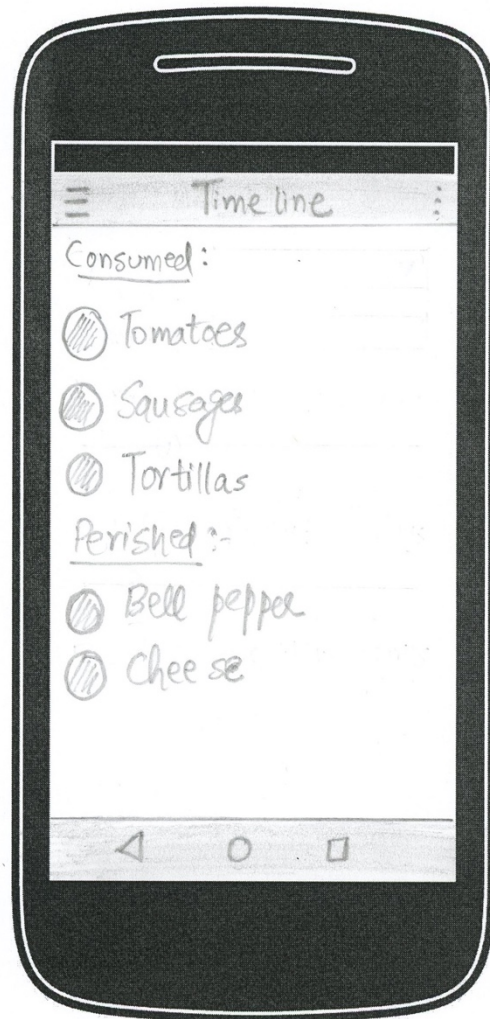 Time line
Consumed:
Tomatoes
Sausages
Tortillas
Perished :-
Bell pepper
Cheese